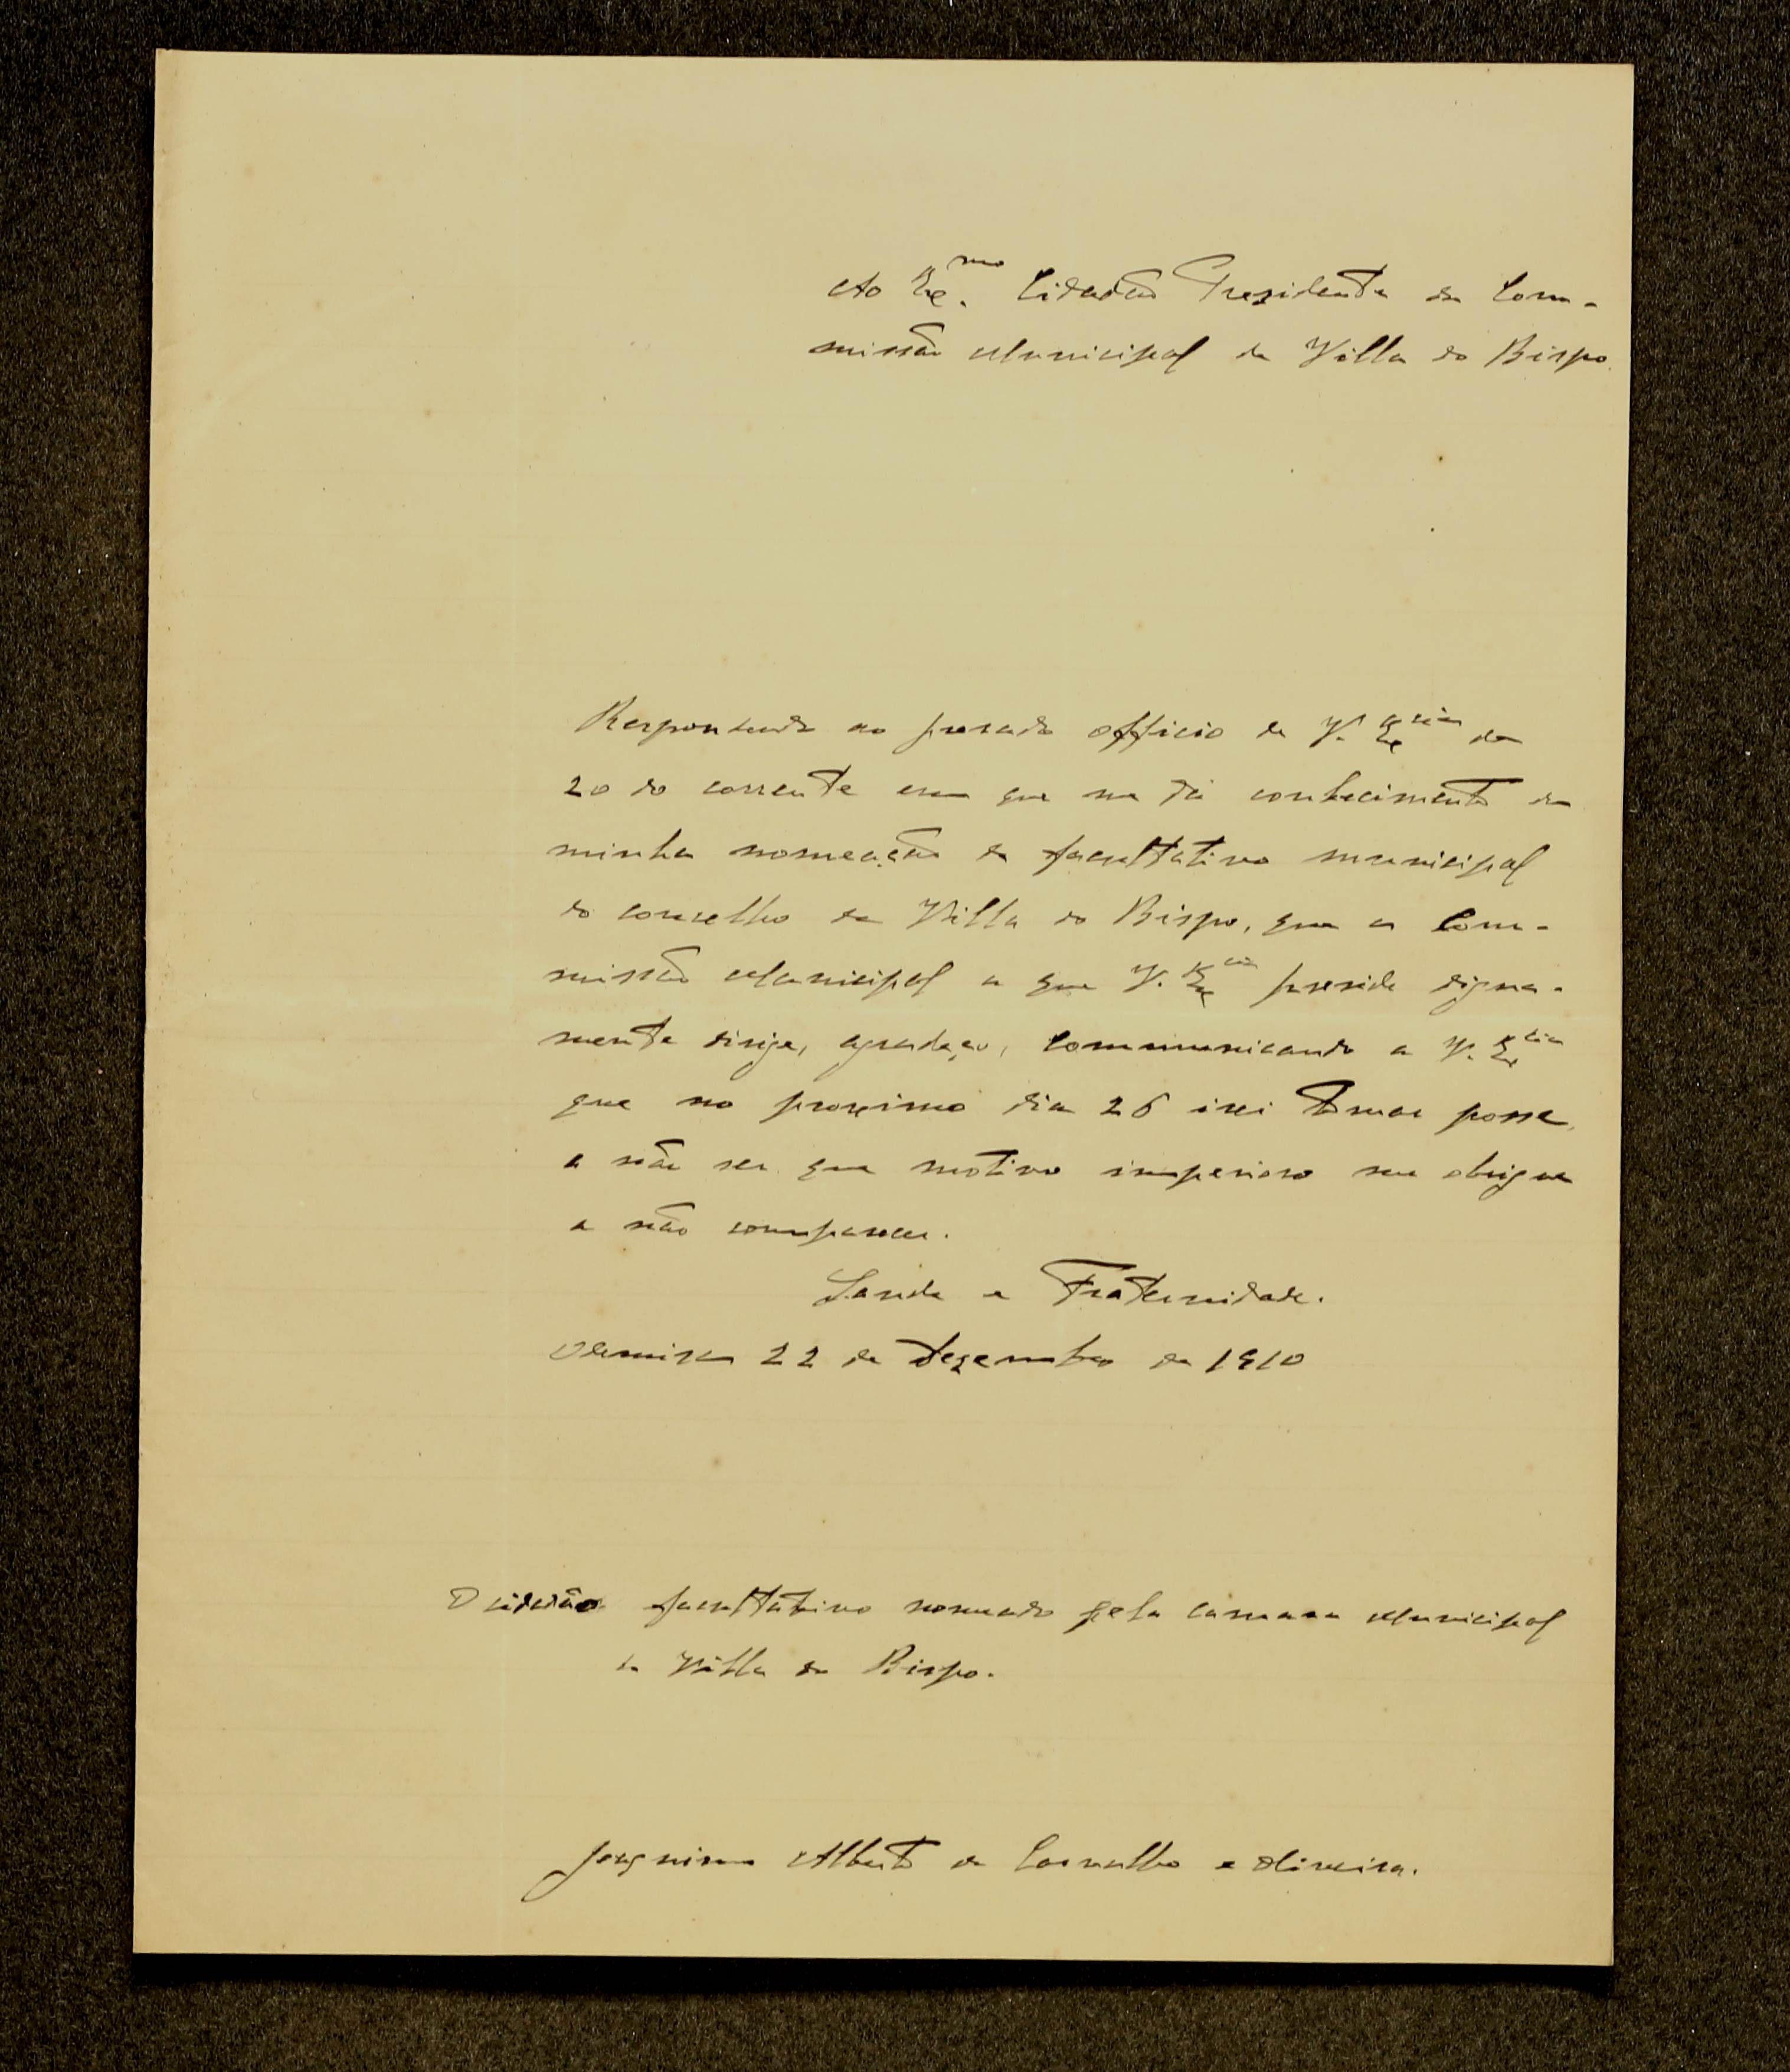 Ao Exmo. Cidadão Presidente da Com-
missão Municipal de Villa do Bispo.
Respondendo ao presado officio de V. Excia de
20 do corrente em que me dá conhecimento da
minha nomeação de facultativo municipal
do concelho de Villa do Bispo, que a Com-
missão Municipal a que V. Excia preside digna-
mente dirige, agradeço, communicando a V. Excia
que no proximo dia 26 irei tomar posse,
a não ser que motivo imperioso me obrigue
a não comparecer.
Saude e Fraternidade.
22 de Dezembro de 1910
O cidadão facultativo nomeado pela camara Municipal
de Villa do Bispo.
Alberto de Carvalho e Oliveira.